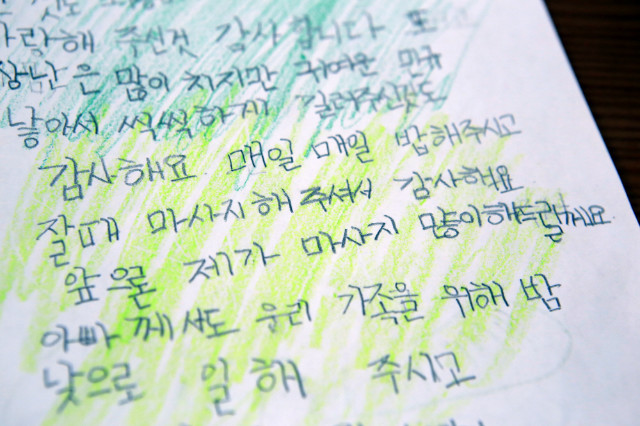 사랑해 주신것 감사합니다 또
장난은 많이 치지만 귀여운 민규
낳아서 씩씩하게 길러주신것도
감사해요 매일매일 밥해주시고
잘때 마사지해주셔서 감사해요
앞으론 제가 마사지 많이해드릴께요
아빠께서도 우리 가족을 위해 밤
낮으로 일해 주시고